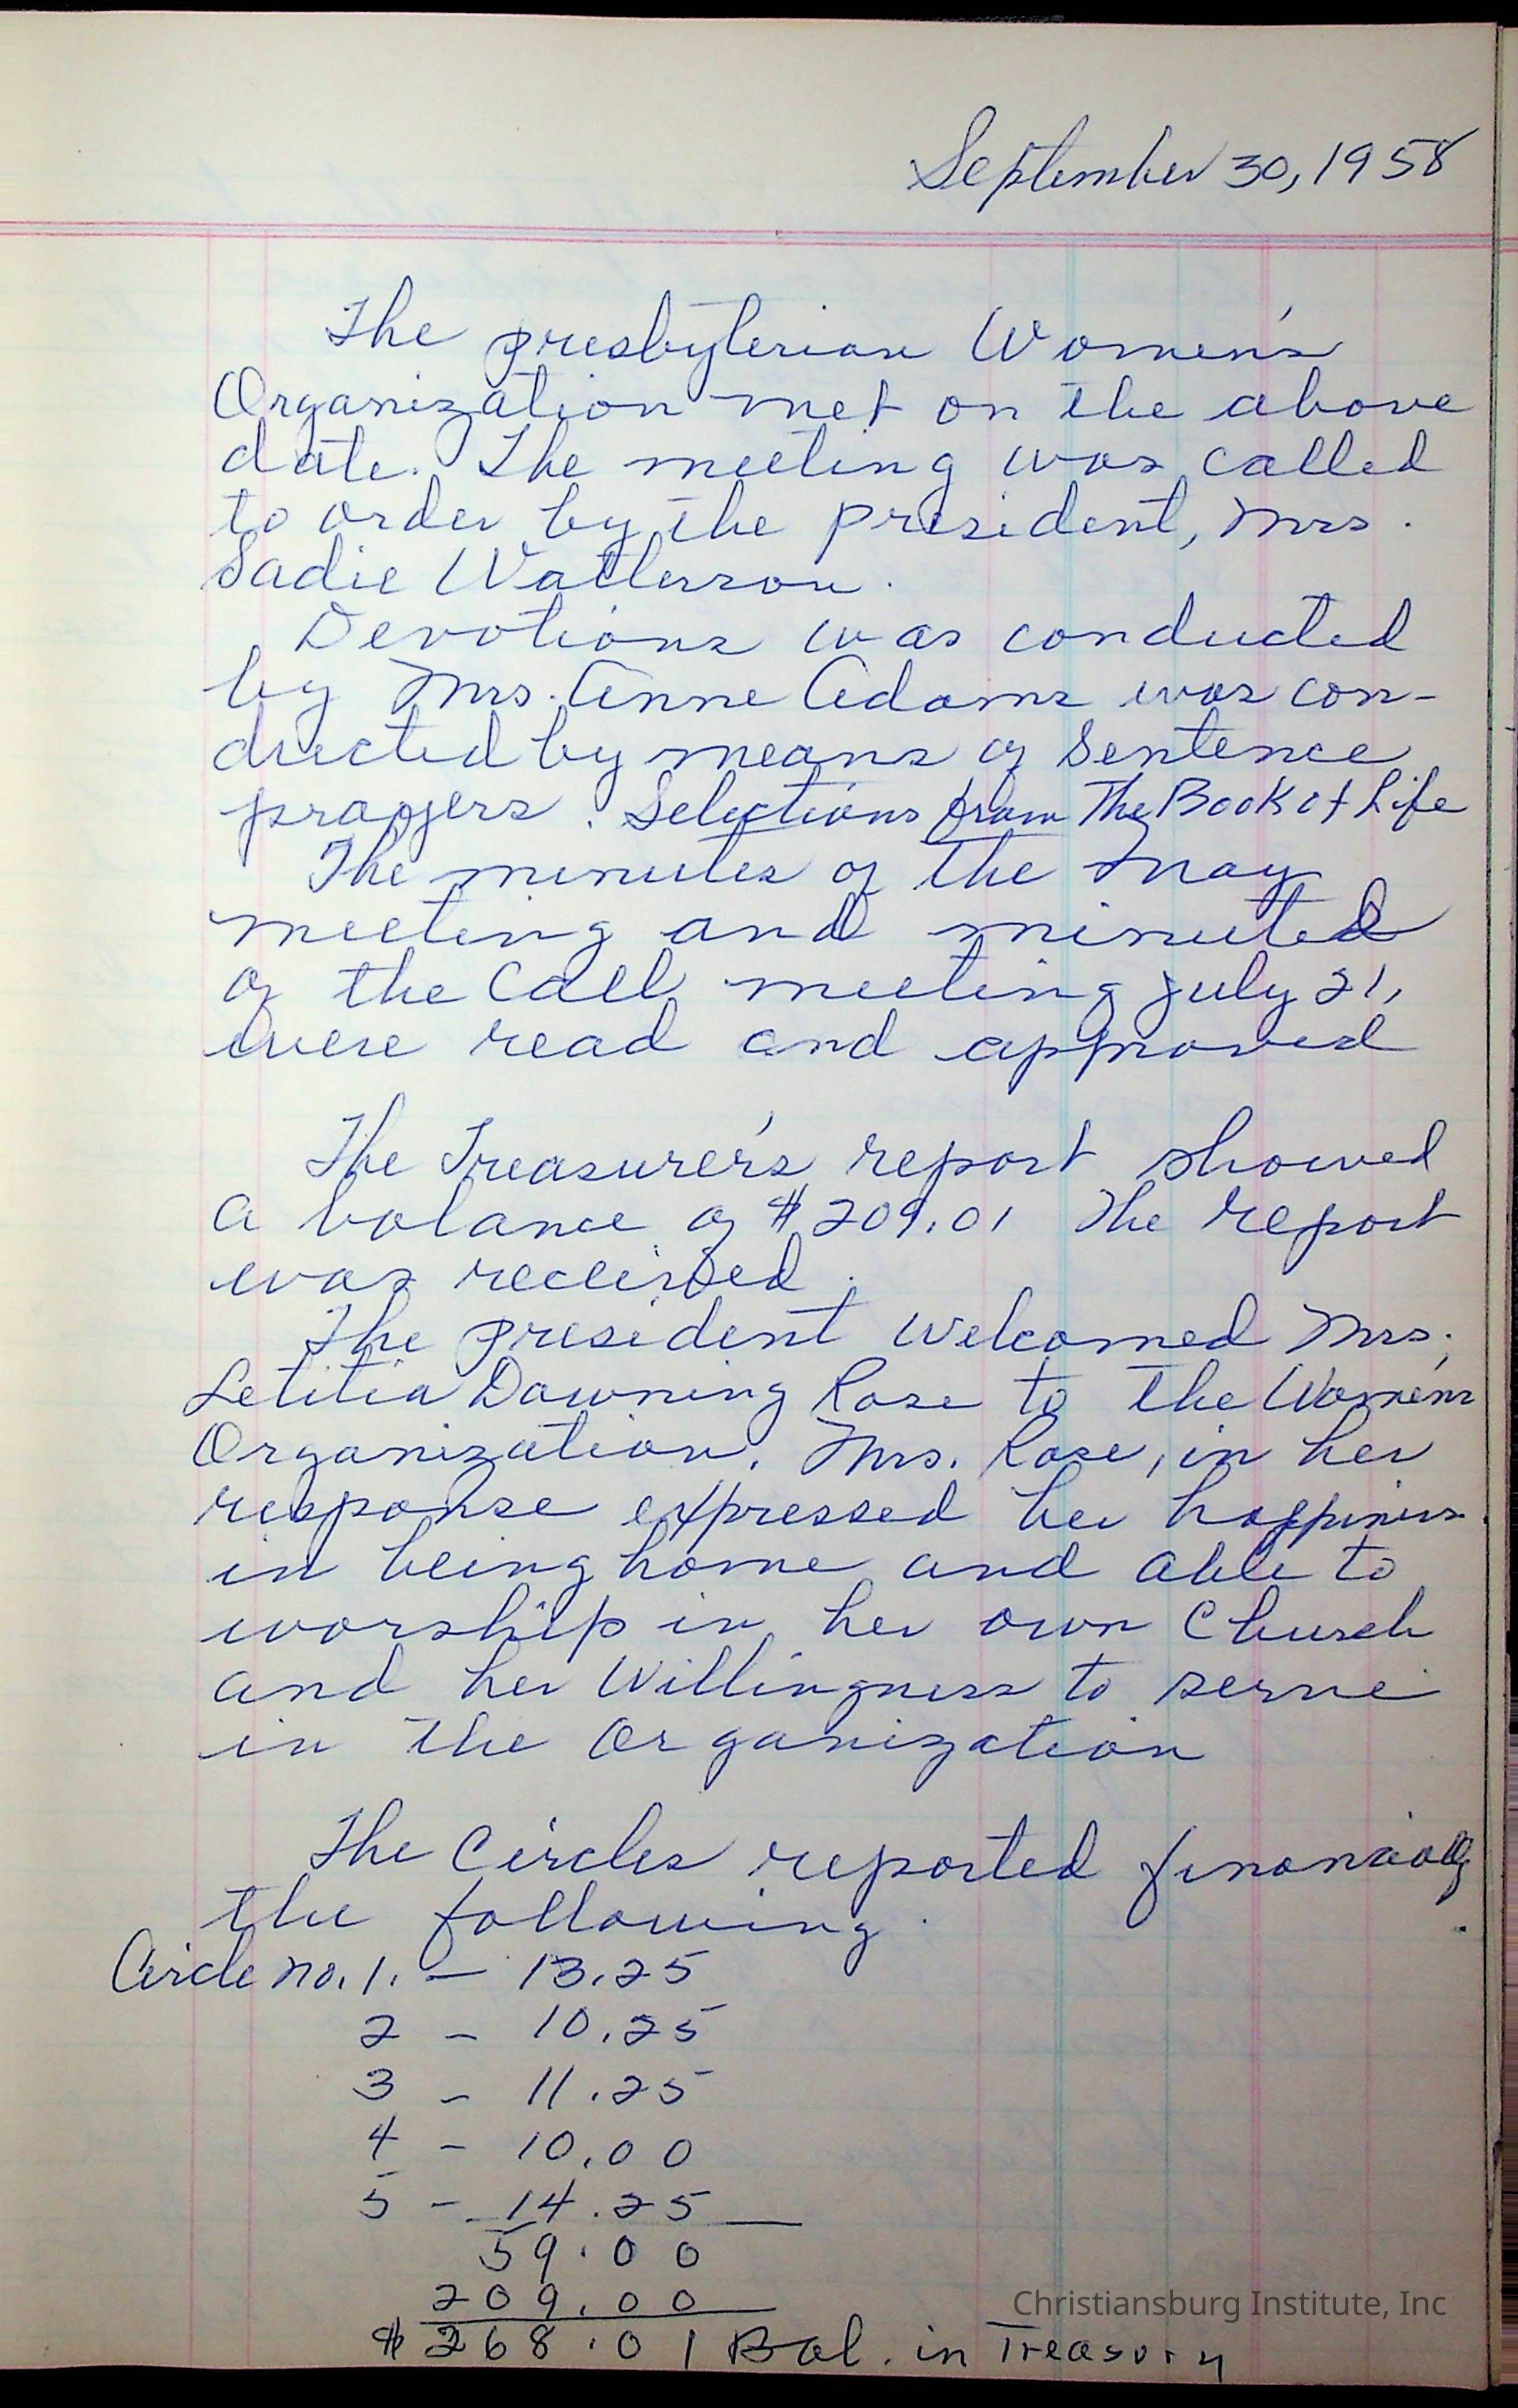 September 30, 1958
The presbyterian Women's
Organization met on the above
date. The meeting was called
to order by the president, Mrs.
Sadie Watterson.
Devotions was conducted
by Mrs. Anne Adams was con-
ducted by means of Sentence
prayers. Selections from The Book of Life
The minutes of the May
meeting and minutes
of the Call meeting July 21,
were read and approved
The Treasurer's report showed
a balance of $209.01 The report
was received.
The president welcomed Mrs.
Letitia Downing Rose to the Women's
Organization. Mrs. Rose, in her
response expressed her happiness
in being home and able to
worship in her own Church
and her Willingness to serve
in the Organization
The Circles reported financially
the following.
Circle no. 1. - 13.25
2 - 10.25
3 - 11.25
4 - 10.00
5 - 14.25
59.00
209.00
$268.01 Bal. in Treasury
Christiansburg Institute, Inc